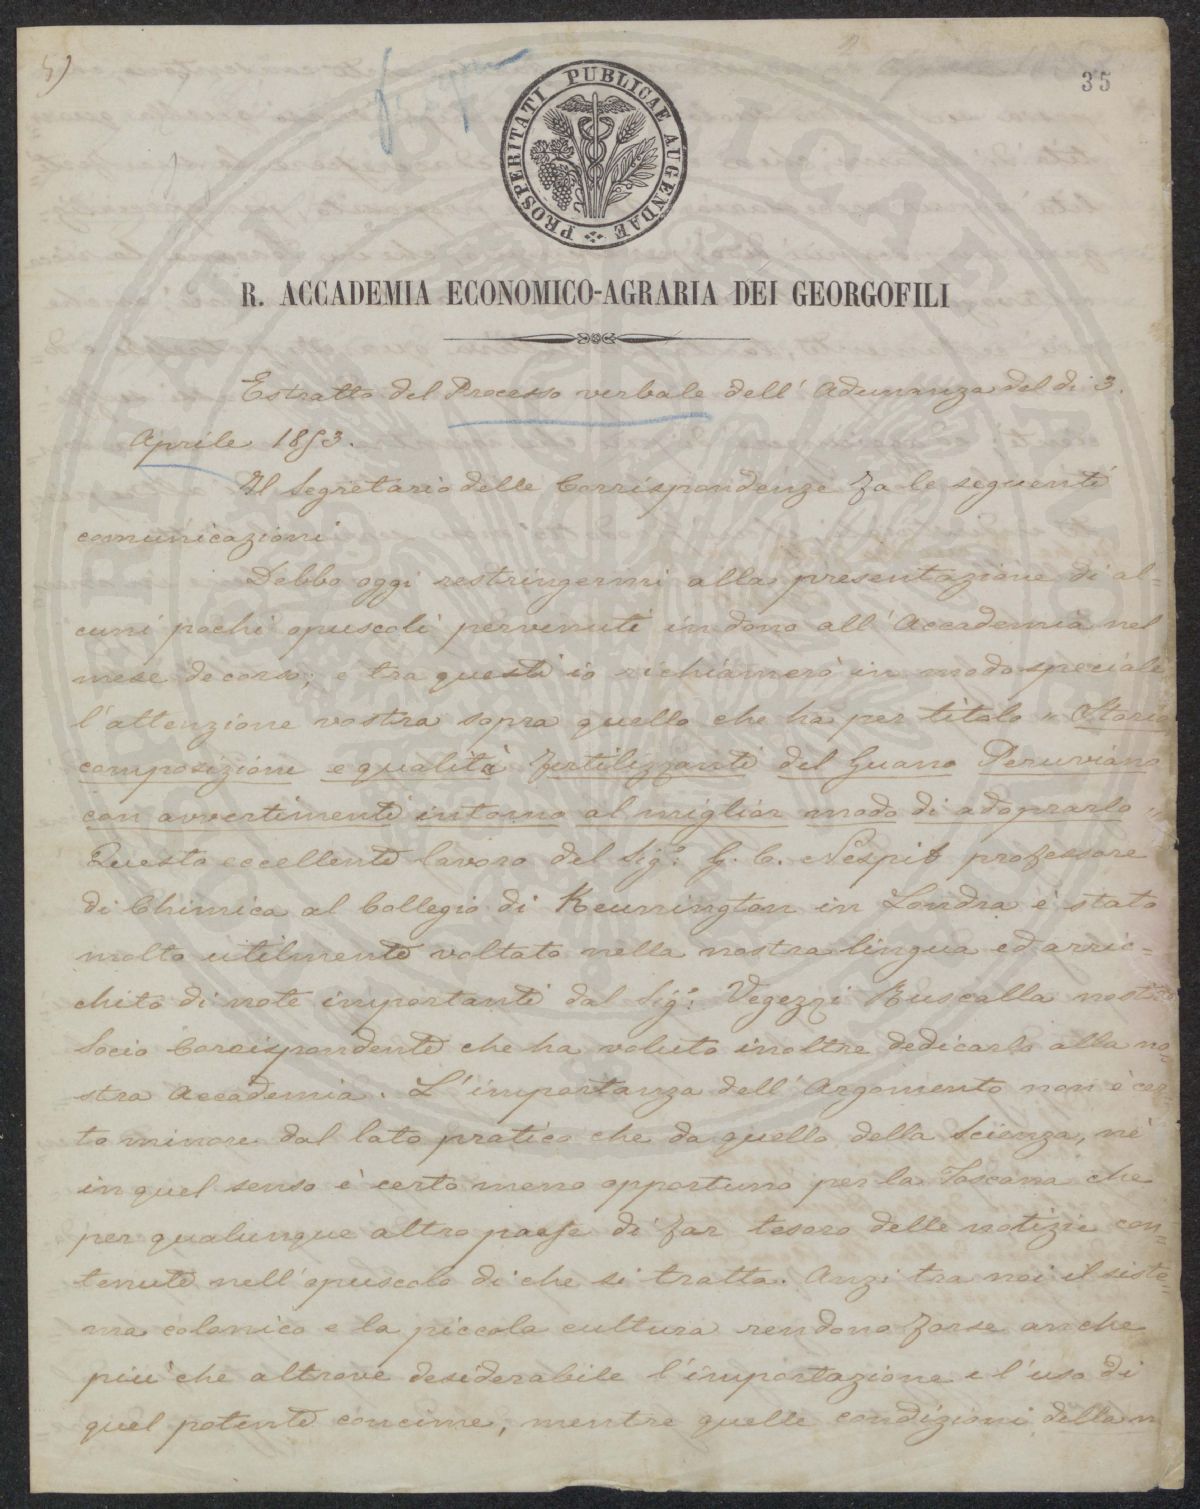 5)
35
PROSPERITATI PUBLICAE AUGENDAE
R. ACCADEMIA ECONOMICO-AGRARIA DEI GEORGOFILI
Estratto del Processo verbale dell'Adunanza del dì 3.
Aprile 1853.
Il Segretario delle Corrispondenze fa le seguenti
comunicazioni
Debbo oggi restringermi alla presentazione di al-
cuni pochi opuscoli pervenuti in dono all'Accademia nel
mese decorso; e tra questi io richiamerò in modo speciale
l'attenzione vostra sopra quello che ha per titolo „ Storia
composizione e qualità fertilizzanti del Guano Peruviano
con avvertimenti intorno al miglior modo di adoprarlo „
Questo eccellente lavoro del Sig.r G. C. Nespit professore
di Chimica al Collegio di Keunnington in Londra è stato
molto utilmente voltato nella nostra lingua ed arric-
chito di note importanti dal Sig.r Vegezzi Ruscalla nostro
Socio Corrispondente che ha voluto inoltre dedicarlo alla no-
stra Accademia. L'importanza dell'Argomento non è cer-
to minore dal lato pratico che da quello della Scienza, nè
in quel senso è certo meno opportuno per la Toscana che
per qualunque altro paese di far tesoro delle notizie con-
tenute nell'opuscolo di che si tratta. Anzi tra noi il siste-
ma colonico e la piccola cultura rendono forse anche
più che altrove desiderabile l'importazione e l'uso di
quel potente concime, mentre quelle condizioni della n